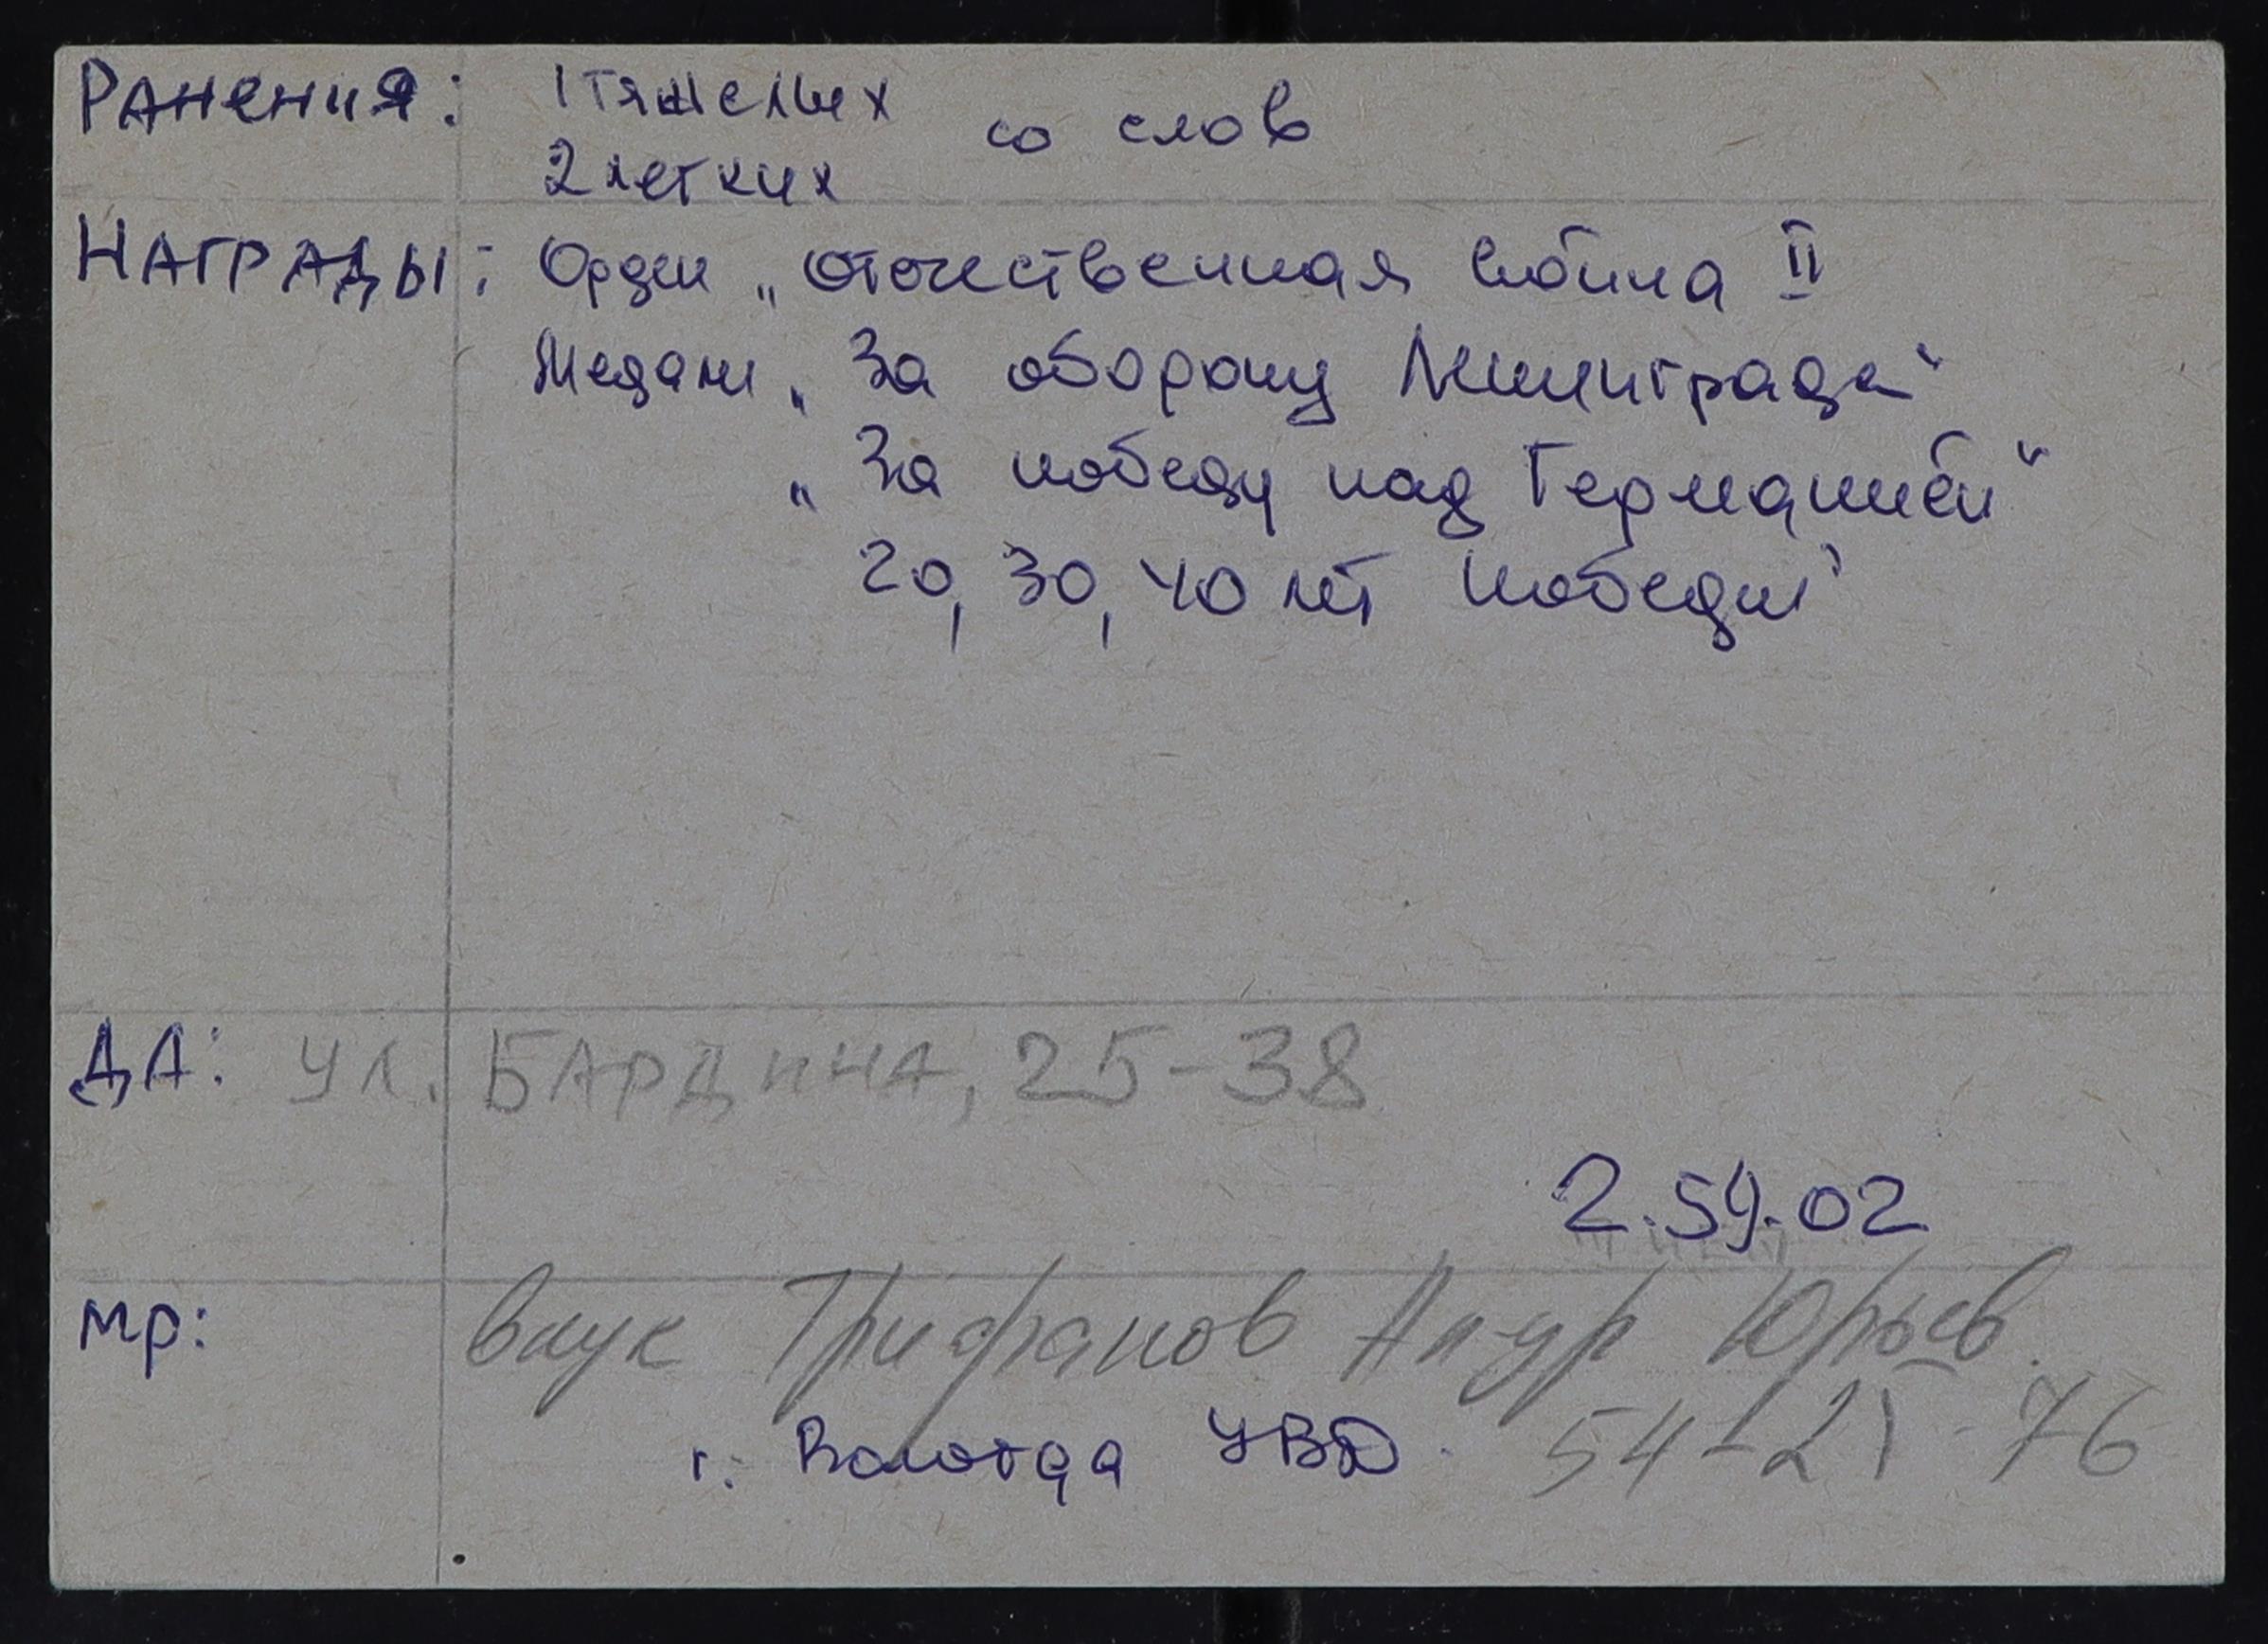 Ранения: 1 тяжелых со слов
2 легких
Награды: Орден „Отечественная война II
Медали „За оборону Ленинграда“
„За победу над Германией“
20, 30, 40 лет Победы“
ДА: ул. Бардина, 25-38
2.59.02
МР: внук Трифанов Юрьев.
г. Вологда УВД. 54-21-76